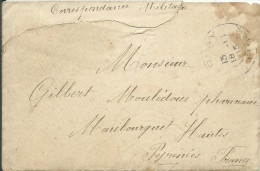 Correspondance Militaire
Monsieur
Gilbert Moulédous pharmacien
Maubourguet Hautes
Pyrénées France